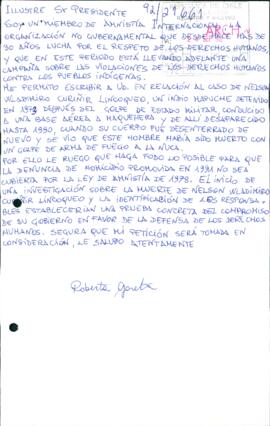 ILLUSTRE SR PRESIDENTE
SOY UN MIEMBRO DE AMNISTÍA INTERNACIONAL,
ORGANIZACIÓN NO GUBERNAMENTAL QUE DESDE HACE MÁS DE
30 AÑOS LUCHA POR EL RESPETO DE LOS DERECHOS HUMANOS
Y QUE EN ESTE PERIODO ESTÁ LLEVANDO ADELANTE UNA
CAMPAÑA SOBRE LAS VIOLACIONES DE LOS DERECHOS HUMANOS
CONTRA LOS PUEBLOS INDÍGENAS.
ME PERMITO ESCRIBIR A UD. EN RELACIÓN AL CASO DE NELSON
WLADIMIRO CURIÑIR LINCOQUEO, UN INDIO MAPUCHE DETENIDO
EN 1973 DESPUÉS DEL GOLPE DE ESTADO MILITAR, CONDUCIDO
A UNA BASE AÉREA A MAQUEHERA Y DE ALLÍ DESAPARECIDO
HASTA 1990, CUANDO SU CUERPO FUE DESENTERRADO DE
NUEVO Y SE VIO QUE ESTE HOMBRE HABÍA SIDO MUERTO CON
UN GOLPE DE ARMA DE FUEGO A LA NUCA.
POR ELLO LE RUEGO QUE HAGA TODO LO POSIBLE PARA QUE
LA DENUNCIA DE HOMICIDIO PROMOVIDA EN 1991 NO SEA
CUBIERTA POR LA LEY DE AMNISTÍA DE 1978. EL INICIO DE
UNA INVESTIGACIÓN SOBRE LA MUERTE DE NELSON WLADIMIRO
CURIÑIR LINCOQUEO Y LA IDENTIFICACIÓN DE LOS RESPONSA
BLES ESTABLECERÍAN UNA PRUEBA CONCRETA DEL COMPROMISO
DE SU GOBIERNO EN FAVOR DE LA DEFENSA DE LOS DERECHOS
HUMANOS. SEGURA QUE MI PETICIÓN SERÁ TOMADA EN
CONSIDERACIÓN, LE SALUDO ATENTAMENTE
Roberta